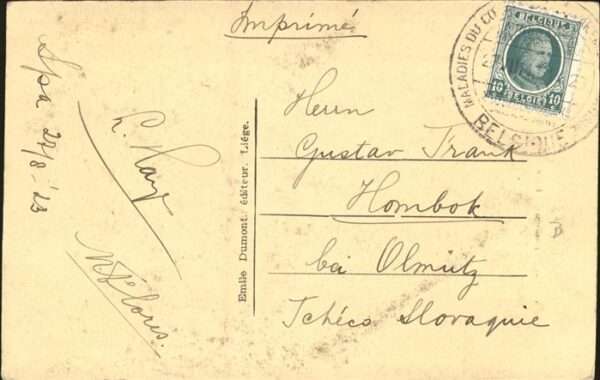 Imprimé
Spa 27/8-23
MALADIES DU CŒ
BELGIQUE
BELGIQUE
10 10
BELGIË
Emile Dumont, éditeur, Liége.
Herrn
Gustav Frank
Hombok
bei Olmütz
Tchéco Slovaquie